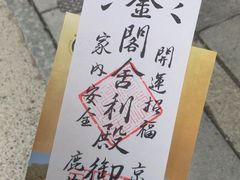 開運招福
金閣舎利殿御
家内安全
京
鹿